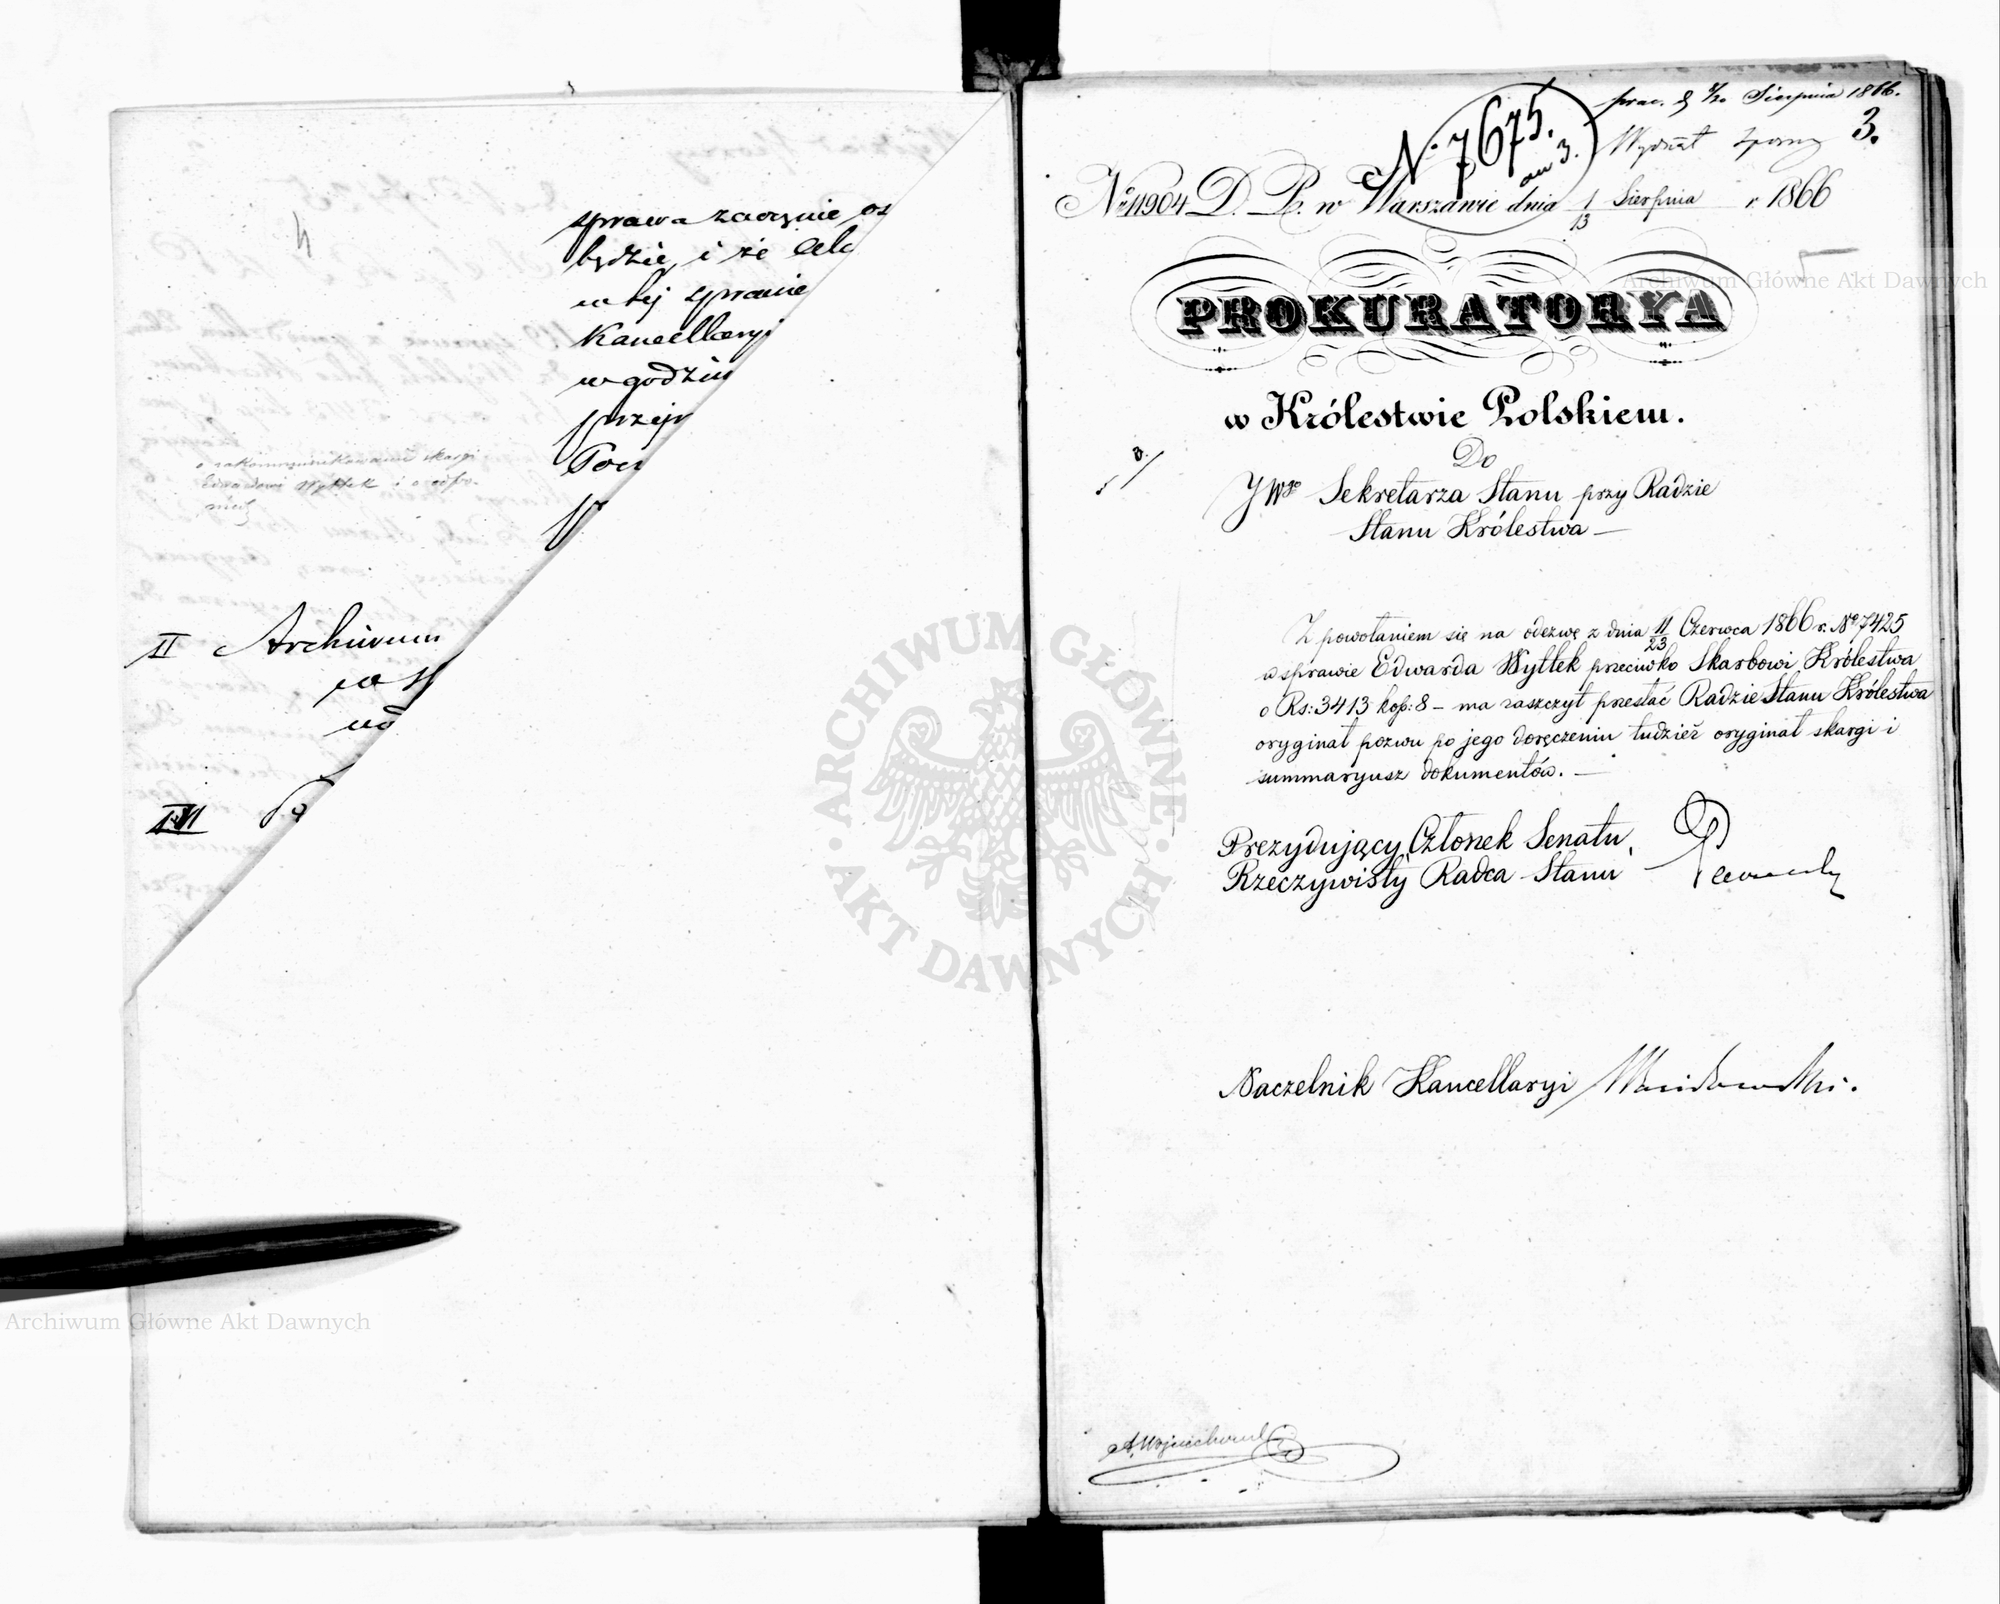 sprawa zaocznie os
będzie, i że cel
w tej sprawie
Kancellaryi
w godzin
przejr
o zakommunikowanie skargi
Edwardowi Wyttek i o odpo-
II Archiwum
w
III
N° 7675.
prez. d. 8/20 Sierpnia 1866.
Wydział sporny 3.
N° 11904 D. P. w Warszawie dnia 1/13 Sierpnia r. 1866
PROKURATORYA
w Królestwie Polskiem.
Do
JWgo Sekretarza Stanu przy Radzie
Stanu Królestwa —
Z powołaniem się na odezwę z dnia 11/23 Czerwca 1866 r. N° 7425
w sprawie Edwarda Wyttek przeciwko Skarbowi Królestwa
o Rs: 3413 kop: 8 – ma zaszczyt przesłać Radzie Stanu Królestwa
oryginał pozwu po jego doręczeniu tudzież oryginał skargi i
summaryusz dokumentów. —
Prezydujący, Członek Senatu,
Rzeczywisty Radca Stanu
Naczelnik Kancellaryi
ARCHIWUM GŁÓWNE AKT DAWNYCH
Archiwum Główne Akt Dawnych
Archiwum Główne Akt Dawnych